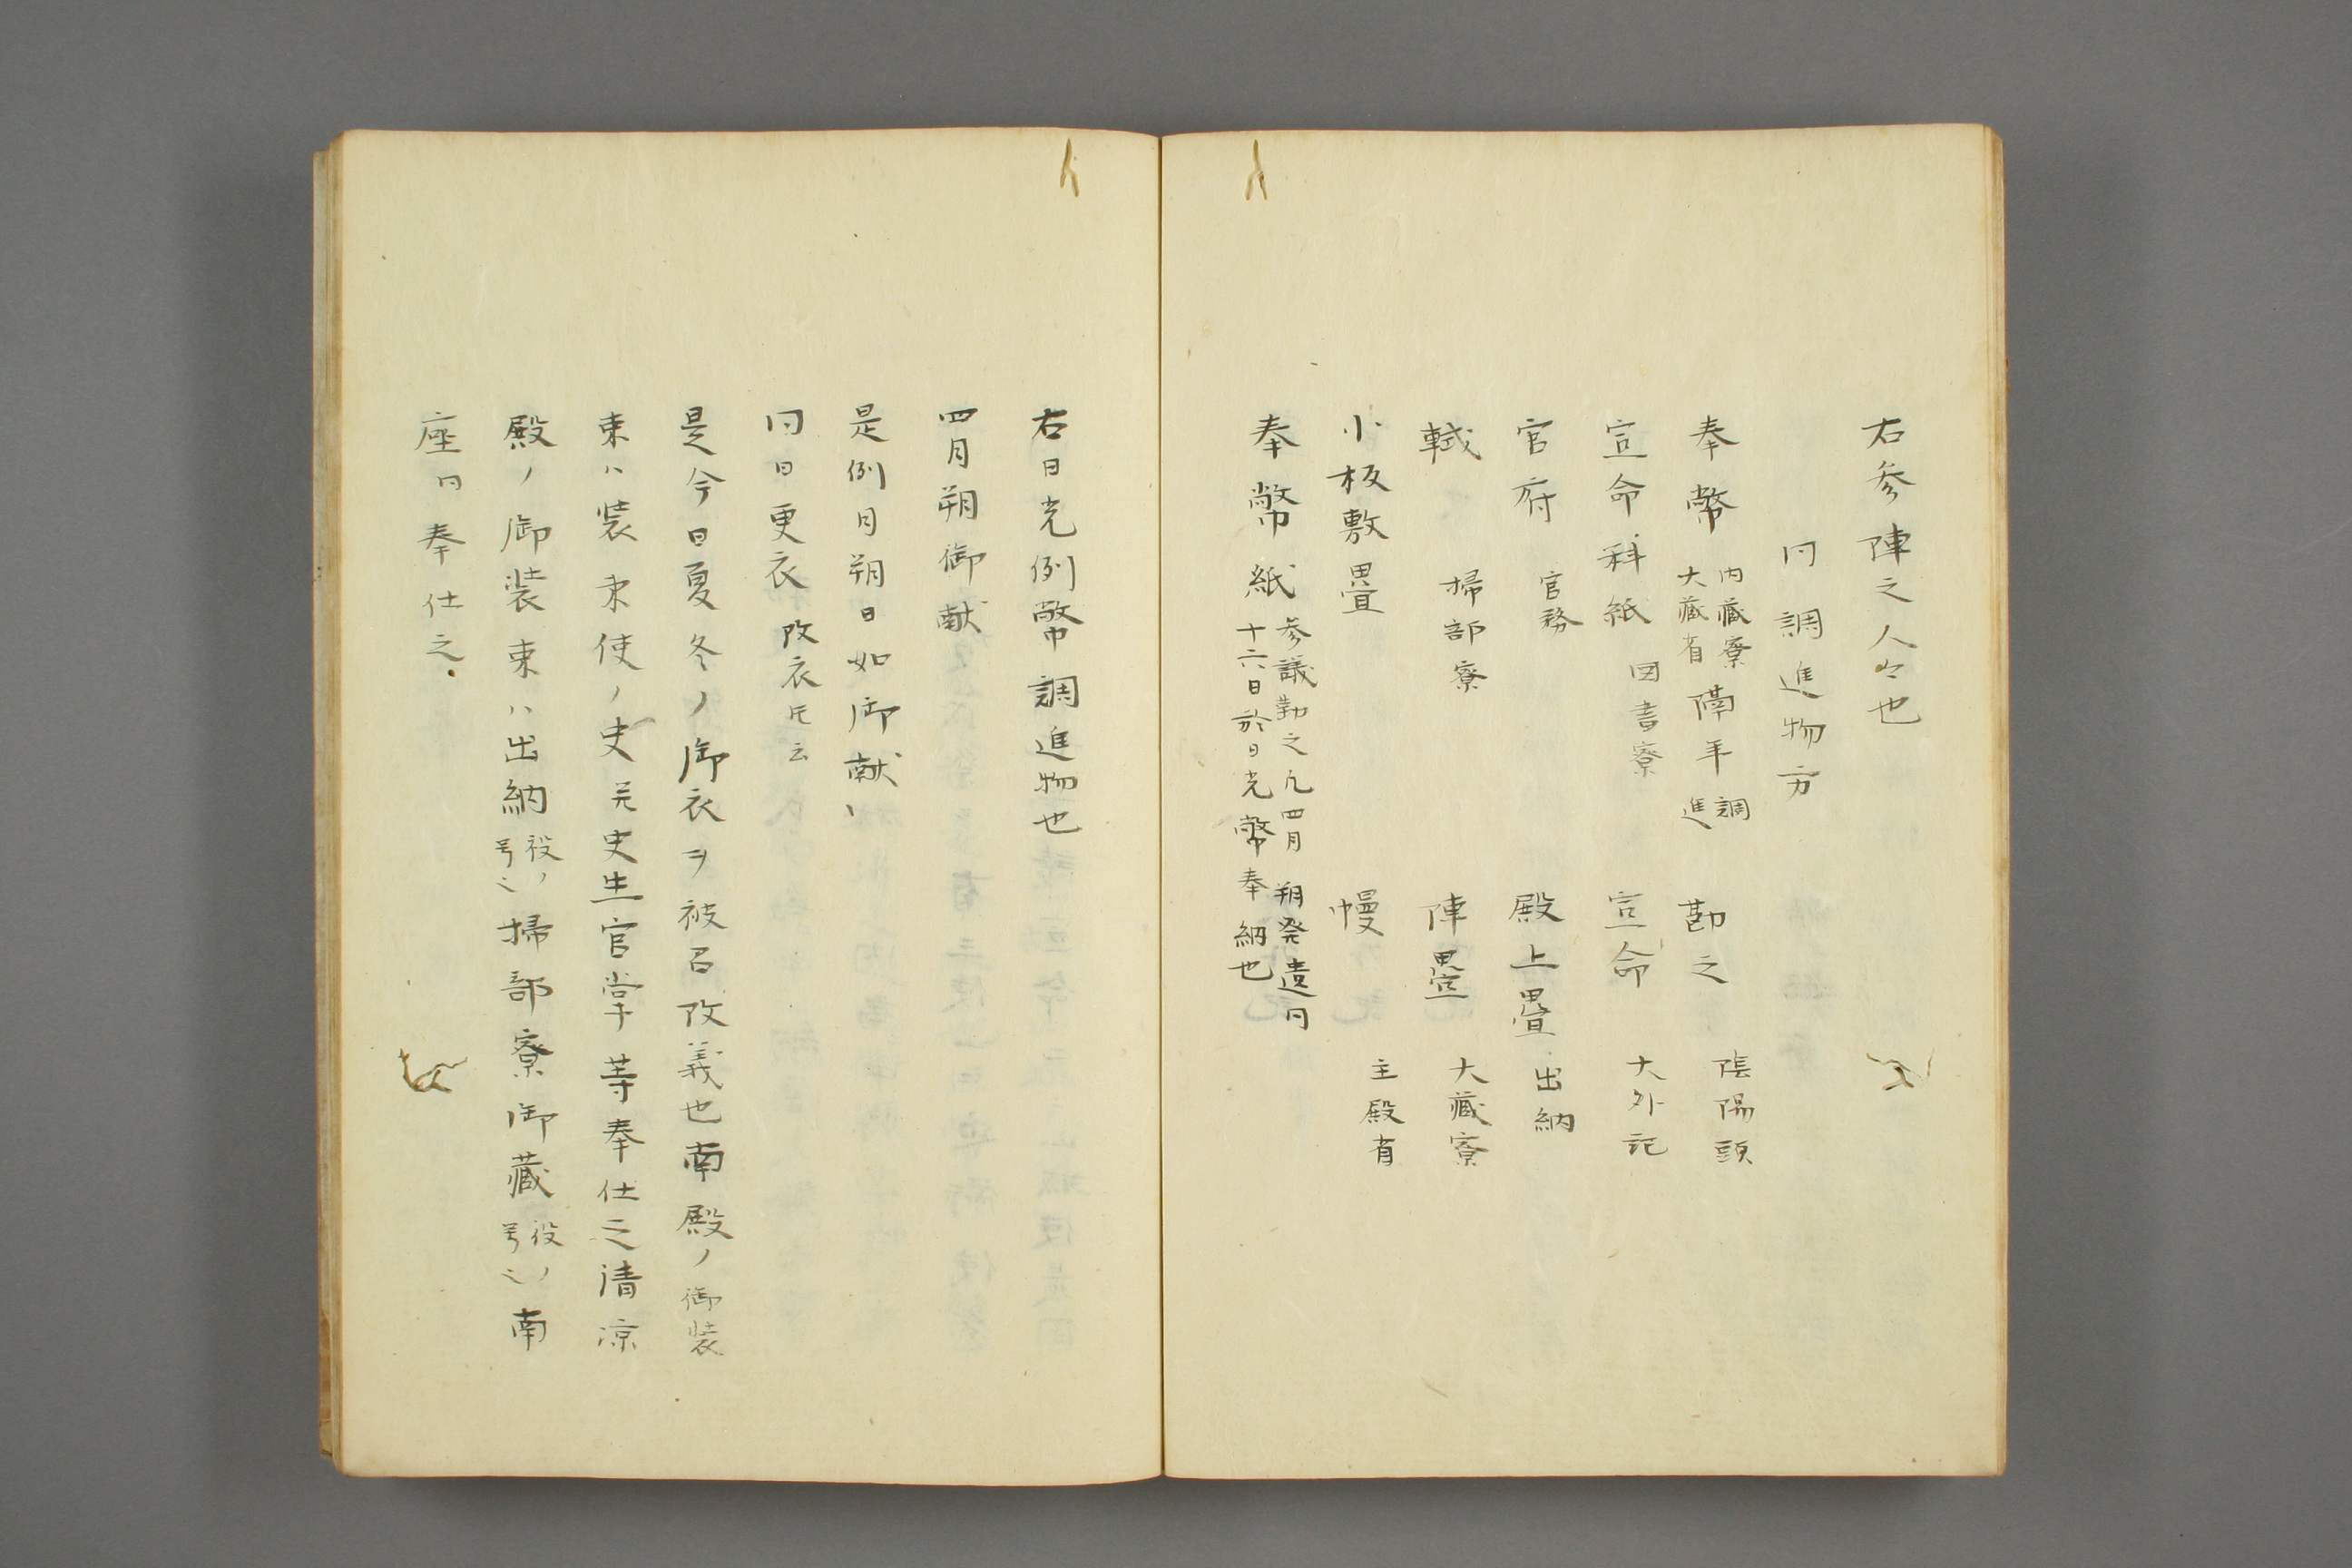 右参陣之人々也
同調進物方
奉幣 内蔵寮 大蔵省 隔年 調進 勘之 陰陽頭
宣命料紙 図書寮 宣命 大外記
官府 官務 殿上畳 出納
軾 掃部寮 陣畳 大蔵寮
小板敷畳 幔 主殿省
奉幣紙 参議勤之凡四月朔発遣同 十六日於日光幣奉納也
右日光例幣調進物也
四月朔御献
是例月朔日如御献ヽ
同日更衣 改衣氏云
是今日夏冬ノ御衣ヲ被召改義也南殿ノ御装
束ハ装束使ノ史并史生官掌等奉仕之清凉
殿ノ御装束ハ出納 役ノ号之 掃部寮御蔵 役ノ号之 南
座同奉仕之